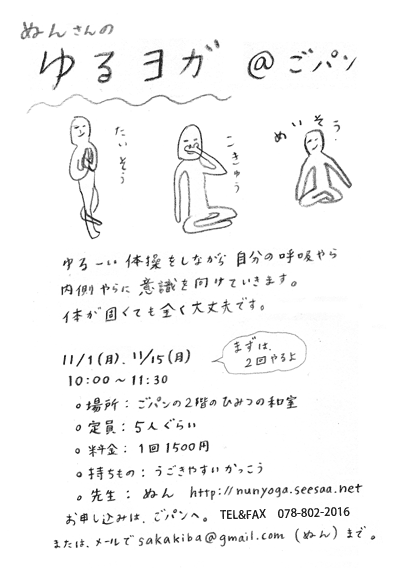 ぬんさんの
ゆるヨガ @ ごパン
たいそう
こきゅう
めいそう
ゆるーい体操をしながら自分の呼吸やら
内側やらに意識を向けていきます。
体が固くても全く大丈夫です。
まずは、
2回やるよ
11/1(月)、11/15(月)
10:00〜11:30
○場所：ごパンの2階のひみつの和室
○定員：5人ぐらい
○料金：1回1500円
○持ちもの：うごきやすいかっこう
○先生：ぬん http://nunyoga.seesaa.net
お申し込みは、ごパンへ。 TEL&FAX 078-802-2016
または、メールで sakakiba@gmail.com (ぬん)まで。